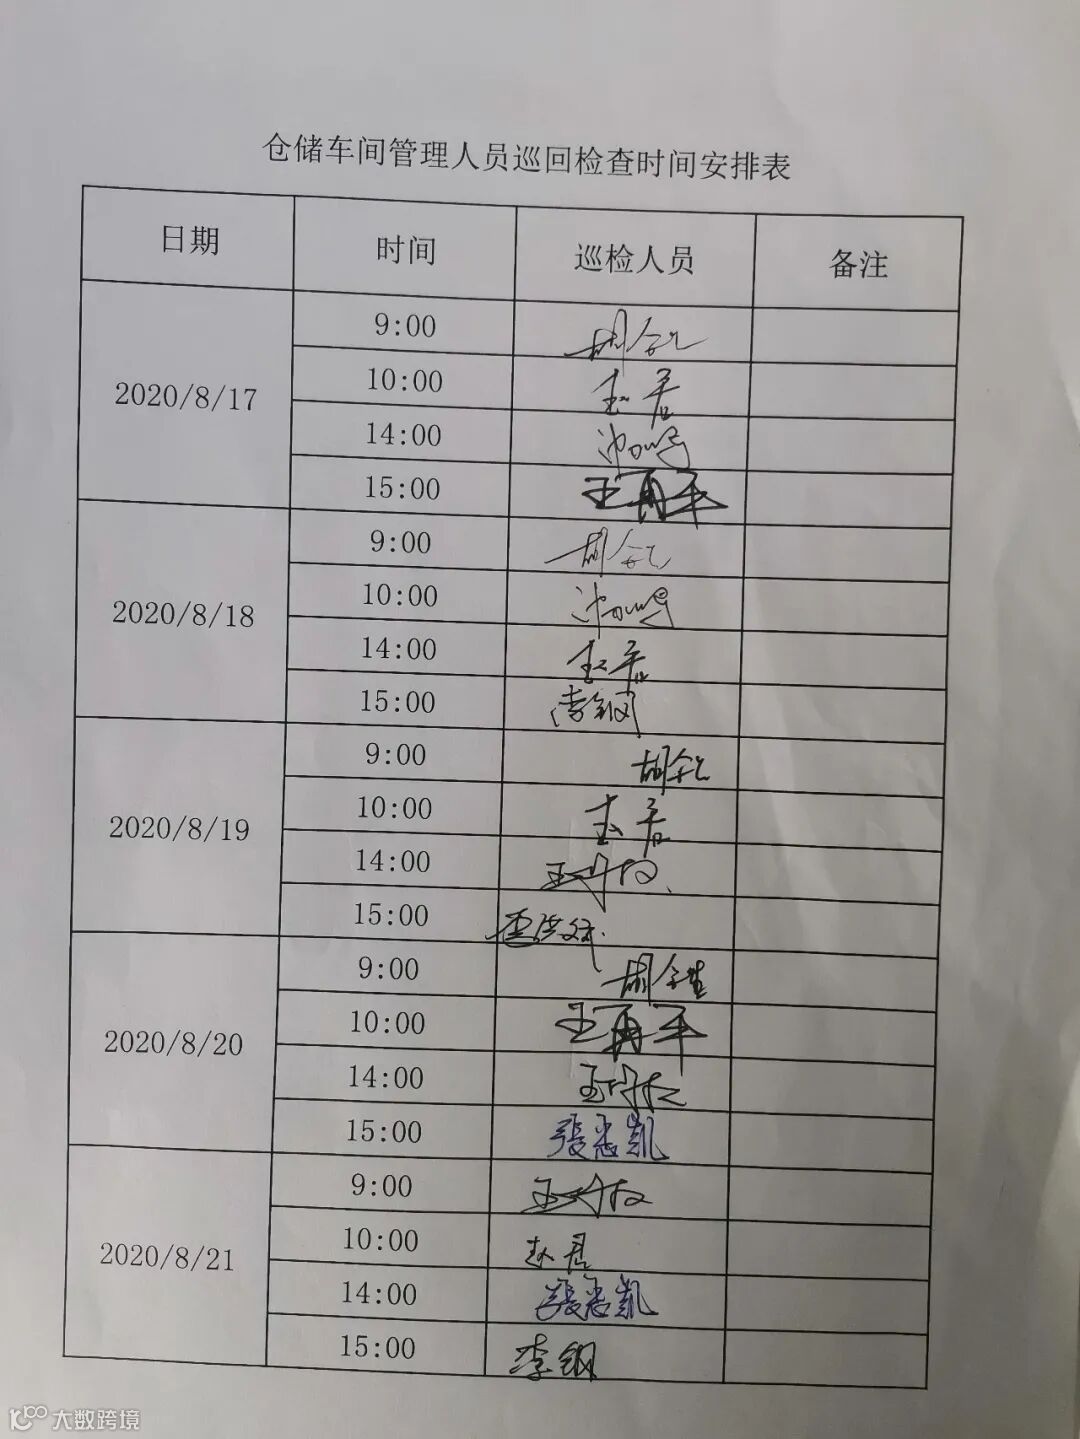 仓储车间管理人员巡回检查时间安排表
日期 时间 巡检人员 备注
2020/8/17
9:00
10:00 赵君
14:00
15:00 王再平
2020/8/18
9:00
10:00
14:00 赵君
15:00 李钢
2020/8/19
9:00
10:00 赵君
14:00
15:00
2020/8/20
9:00
10:00 王再平
14:00
15:00 張志凯
2020/8/21
9:00
10:00 赵君
14:00 張志凯
15:00 李钢
大数跨境